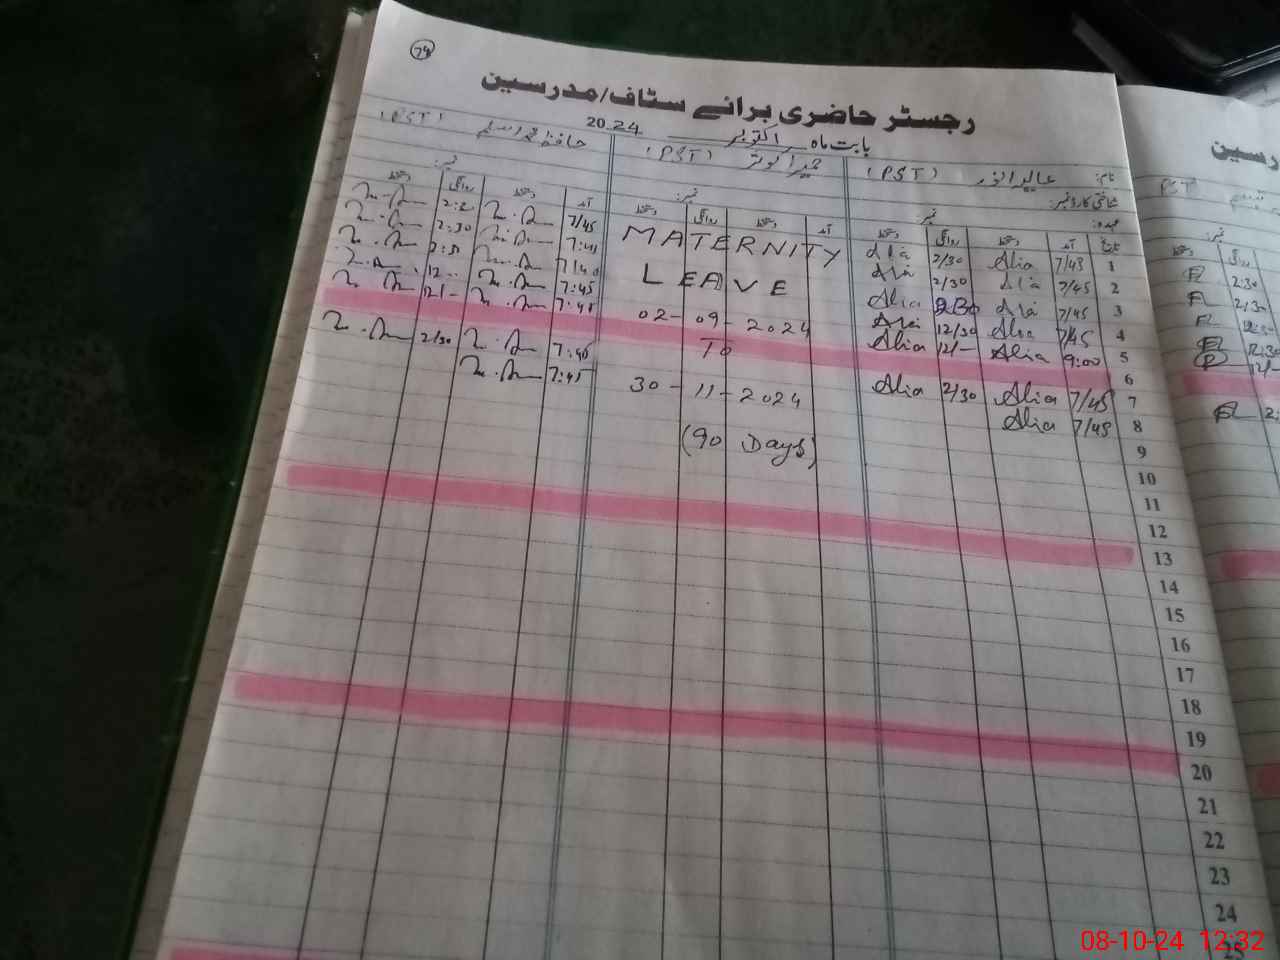 74
رجسٹر حاضری برائے سٹاف/مدرسین
بابت ماہ اکتوبر 2024
نام: عالیہ انور (PST)
(PST)
حافظ محمد اسلم (PST)
شناختی کارڈ نمبر:
عہدہ: نمبر:
نمبر:
نمبر:
تاریخ آمد دستخط روانگی دستخط
آمد دستخط روانگی دستخط
آمد دستخط روانگی دستخط
1 7/45 Alia 2/30 Alia
2 7/45 Alia 2/30 Alia
3 7/45 Alia 2:30 Alia
4 7/45 Alia 12/30 Alia
5 9:00 Alia 12/- Alia
6
7 7/45 Alia 2/30 Alia
8 7/45 Alia
9
10
11
12
13
14
15
16
17
18
19
20
21
22
23
24
25
MATERNITY
LEAVE
02-09-2024
To
30-11-2024
(90 Days)
7/45
7:40
7:45
7:45
2:30
12/-
7:45 2/30
7:45
رسین
PST
2:30
2/30
12:30
12/-
08-10-24 12:32